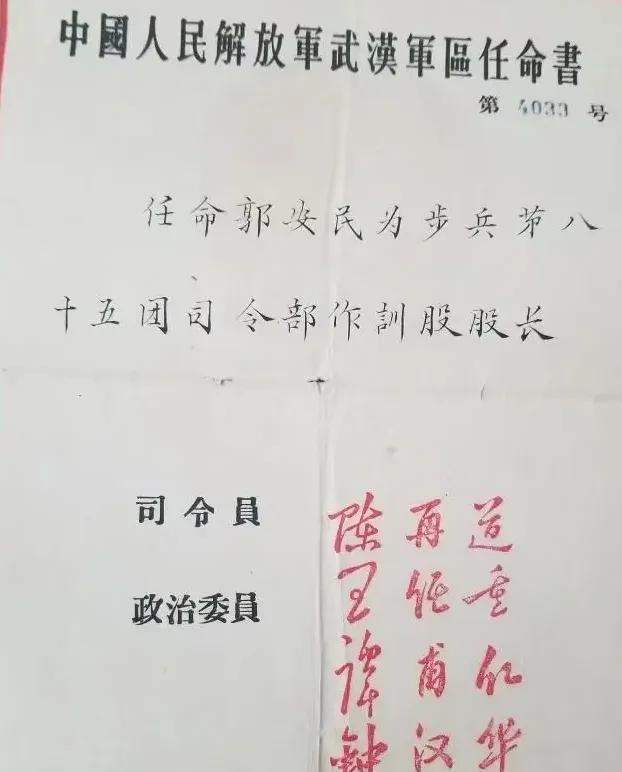 中國人民解放軍武漢軍區任命書
第 4033 号
任命郭安民为步兵第八
十五团司令部作訓股股长
司令員 陈再道
政治委員 王任重
譚甫仁
钟汉华